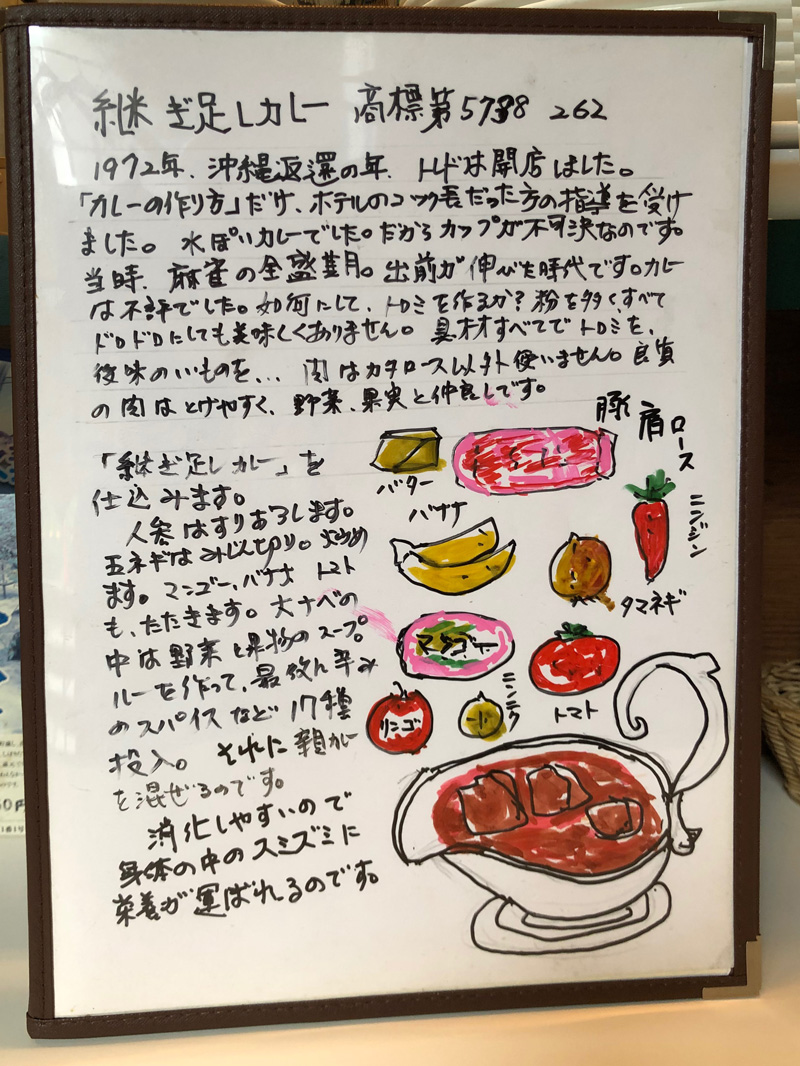 継ぎ足しカレー 商標第5738 262
1972年、沖縄返還の年、トドは開店しました。
「カレーの作り方」だけ、ホテルのコック長だった方の指導を受け
ました。水ぽいカレーでした。だからカップが不可決なのです。
当時、麻雀の全盛期。出前が伸びた時代です。カレー
は不評でした。如何にして、トロミを作るか?粉を多く、すべて
ドロドロにしても美味しくありません。具材すべてでトロミを、
後味のいいものを、.. 肉はカタロース以外使いません。良質
の肉はとけやすく、野菜、果実と仲良しです。
豚肩ロース
「継ぎ足しカレー」を
仕込みます。
人参はすりおろします。
玉ネギはみじん切り。炒め
ます。マンゴー、バナナ トマト
も、たたきます。大ナベの
中は野菜と果物のスープ。
ルーを作って、最後に辛み
のスパイスなど17種
投入。それに親カレー
を混ぜるのです。
消化しやすいので
身体の中のスミズミに
栄養が運ばれるのです。
バター
バナナ
ニンジン
タマネギ
マンゴー
トマト
リンゴ
ニンニク